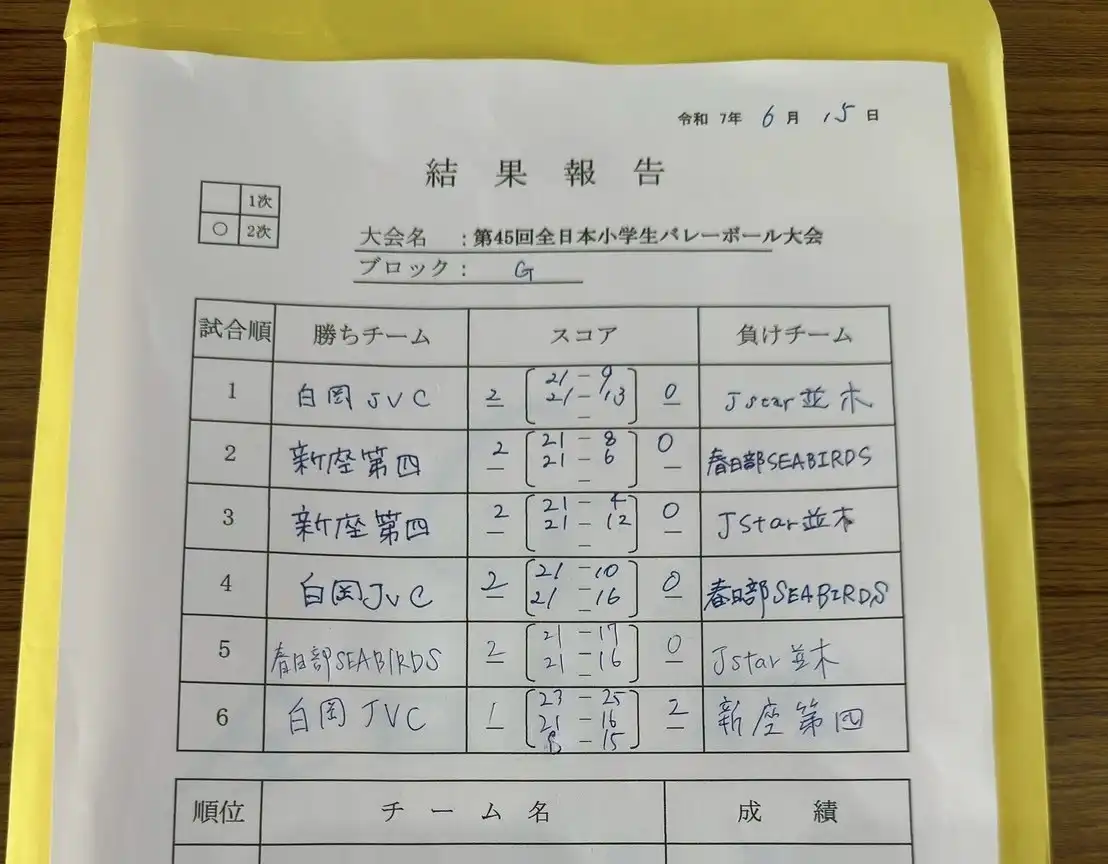 令和 7年 6月 15日
結果報告
1次
○ 2次
大会名 ：第45回全日本小学生バレーボール大会
ブロック： G
試合順 勝ちチーム スコア 負けチーム
1 白岡JVC 2 [21 - 9 0 Jstar並木
21 - 13
-
2 新座第四 2 [21 - 8 0 春日部SEABIRDS
21 - 6
-
3 新座第四 2 [21 - 4 0 JStar並木
21 - 12
-
4 白岡JVC 2 [21 - 10 0 春日部SEABIRDS
21 - 16
5 春日部SEABIRDS 2 [21 - 17 0 Jstar並木
21 - 16
6 白岡JVC 1 [23 - 25 2 新座第四
21 - 16
8 - 15
順位 チーム名 成績